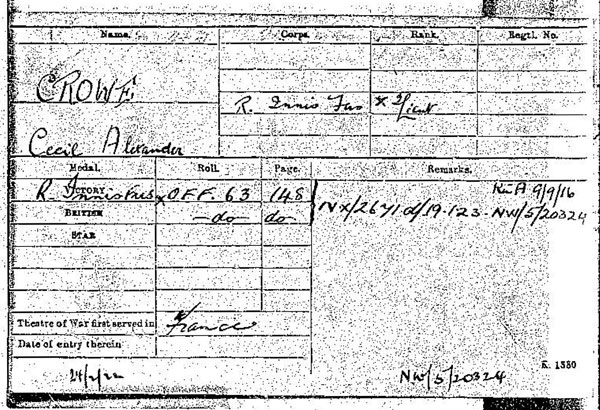 Name. Corps. Rank. Regtl. No.
CROWE
R. Innis Fus x 2/Lieut
Cecil Alexander
Medal. Roll. Page. Remarks.
VICTORY R. Innis Fus x OFF. 63 148 KinA 9/9/16
BRITISH —do— do— NW/5/20324
STAR
Theatre of War first served in France
Date of entry therein
K. 1380
NW/5/20324